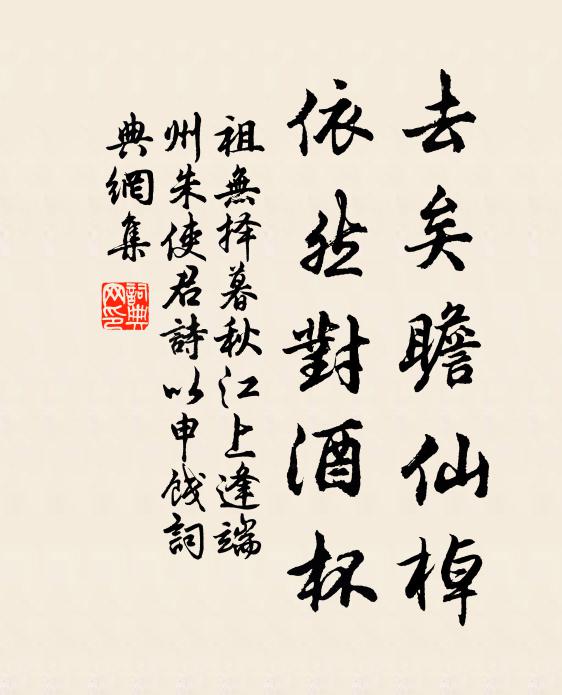 去矣瞻仙棹
依然對酒杯
祖無择暮秋江上逢端
州朱使君詩以申餞詞
典網集
詞典网印